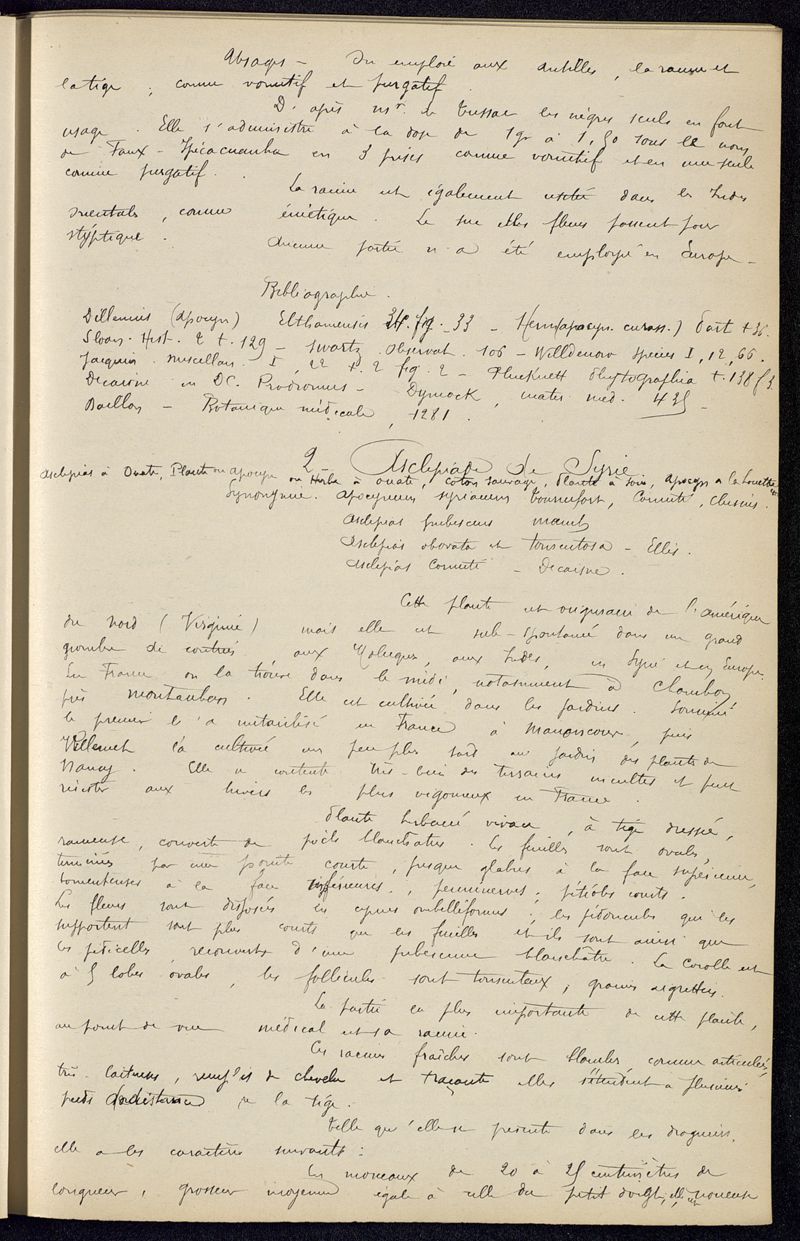 Usages — On emploie aux Antilles, la racine et
la tige, comme vomitif et purgatif.
D'après Mr de Tussac les nègres seuls en font
usage. Elle s'administre à la dose de 1 gr à 1,50 sous le nom
de Faux-Ipécacuanha en 3 prises comme vomitif et en une seule
comme purgatif.
La racine est également usitée dans les Indes
orientales, comme émétique. Le suc et les fleurs passent pour
styptique.
Aucune partie n'a été employé en Europe —
Bibliographie.
Dillenius (apocyn) Elthamensis fig. 33 — Herm (apocyn. curass.) Part t 36.
Sloan. Hist. 2 t. 129 — Swartz observat. 106 — Willdenow species I, 12, 66.
Jacquin miscellan. I, 22 t. 2 fig. 2 — Plucknett Phytographia t. 138 f 3.
Decaisne in DC. Prodromus — Dymock, mater. med. 435 —
Baillon — Botanique médicale, 1281.
2 Asclépiade de Syrie
Asclepias à Ouate, Plante ou apocyn ou Herbe à ouate, coton sauvage, Plante à soie, apocyn à la houette
Synonymie. Apocynum syriacum Tournefort, Cornuti, Clusius.
Asclepias pubescens Mœnch
Asclepias obovata et tomentosa — Ellis.
Asclepias Cornuti — Decaisne.
Cette plante est originaire de l'Amérique
du Nord (Virginie) mais elle est sub-spontanée dans un grand
nombre de contrées aux Moluques, aux Indes, en Syrie et en Europe.
En France on la trouve dans le midi, notamment à
près Montauban. Elle est cultivée dans les jardins. Sonnini
le premier l'a naturalisé en France à Manoncourt, puis
Willemet l'a cultivée un peu plus tard au jardin des plantes de
Nancy. Elle se contente très-bien des terrains incultes et peut
résister aux hivers les plus vigoureux en France.
Plante herbacée vivace, à tige dressée,
rameuse, couverte de poils blanchatres. Les feuilles sont ovales,
terminées par une pointe courte, presque glabres à la face supérieure,
tomenteuses à la face inférieure, penninerves, pétioles courts.
Les fleurs sont disposées en cymes ombelliformes; les pédoncules qui les
supportent sont plus courts que les feuilles et ils sont ainsi que
les pédicelles, recouverts d'une pubescence blanchâtre. La corolle est
à 5 lobes ovales, les follicules sont tomenteux; graines aigrettées.
La partie la plus importante de cette plante,
au point de vue médical est sa racine.
Ces racines fraîches sont blanches, comme articulées,
très laiteuses, de chevelu et traçante elles s'étendent à plusieurs
pieds de la tige.
Telle qu'elle se présente dans les drogueries,
elle a les caractères suivants:
En morceaux de 20 à 25 centimètres de
longueur, grosseur moyenne égale à celle du petit doigt, elle est noueuse